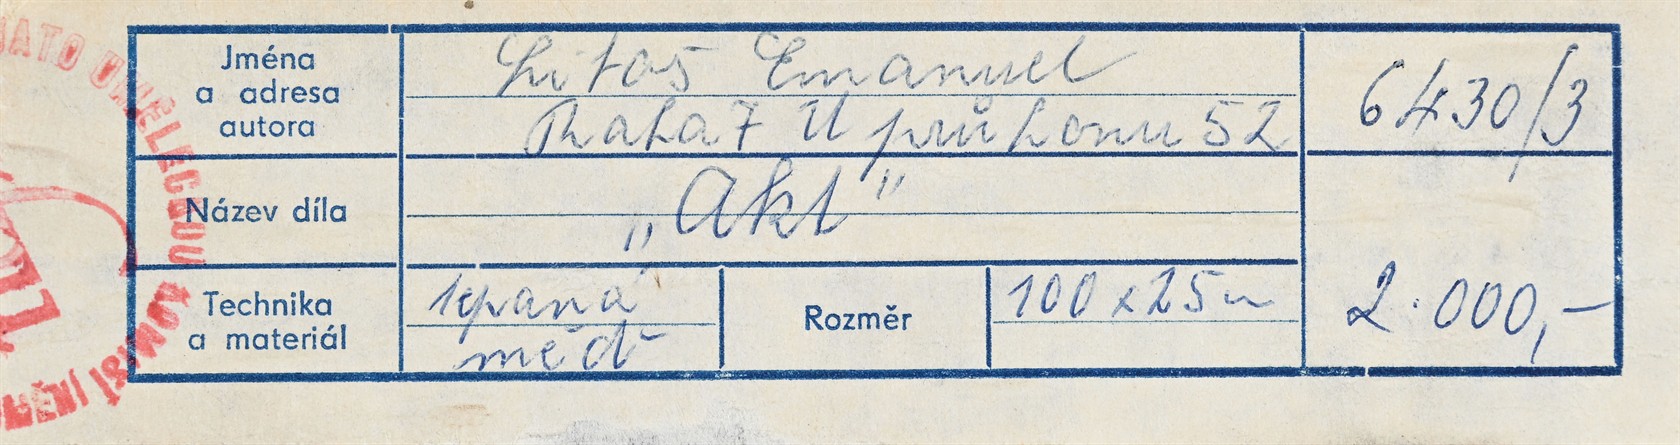 Jména
a adresa
autora
Litoš Emanuel
Praha 7 U průhonu 52
6430/3
Název díla
„Akt"
Technika
a materiál
tepaná
měď
Rozměr
100 x 25
2.000,-
JATO UMĚLECKOU KOMISÍ